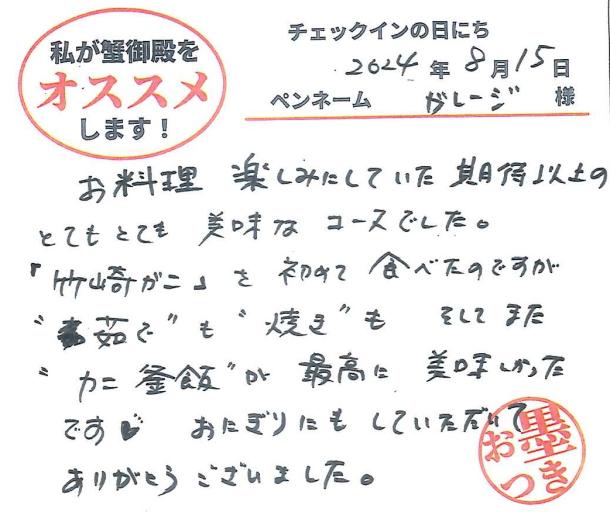 私が蟹御殿を
オススメ
します！
チェックインの日にち
2024年8月15日
ペンネーム ガレージ 様
お料理 楽しみにしていた 期待以上の
とてもとても 美味な コースでした。
『竹崎がニ』を 初めて 食べたのですが
“茹で”も“焼き”も そして また
“カニ 釜飯”が 最高に 美味しかった
です♥ おにぎりにも していただいて
ありがとう ございました。
お墨
つき